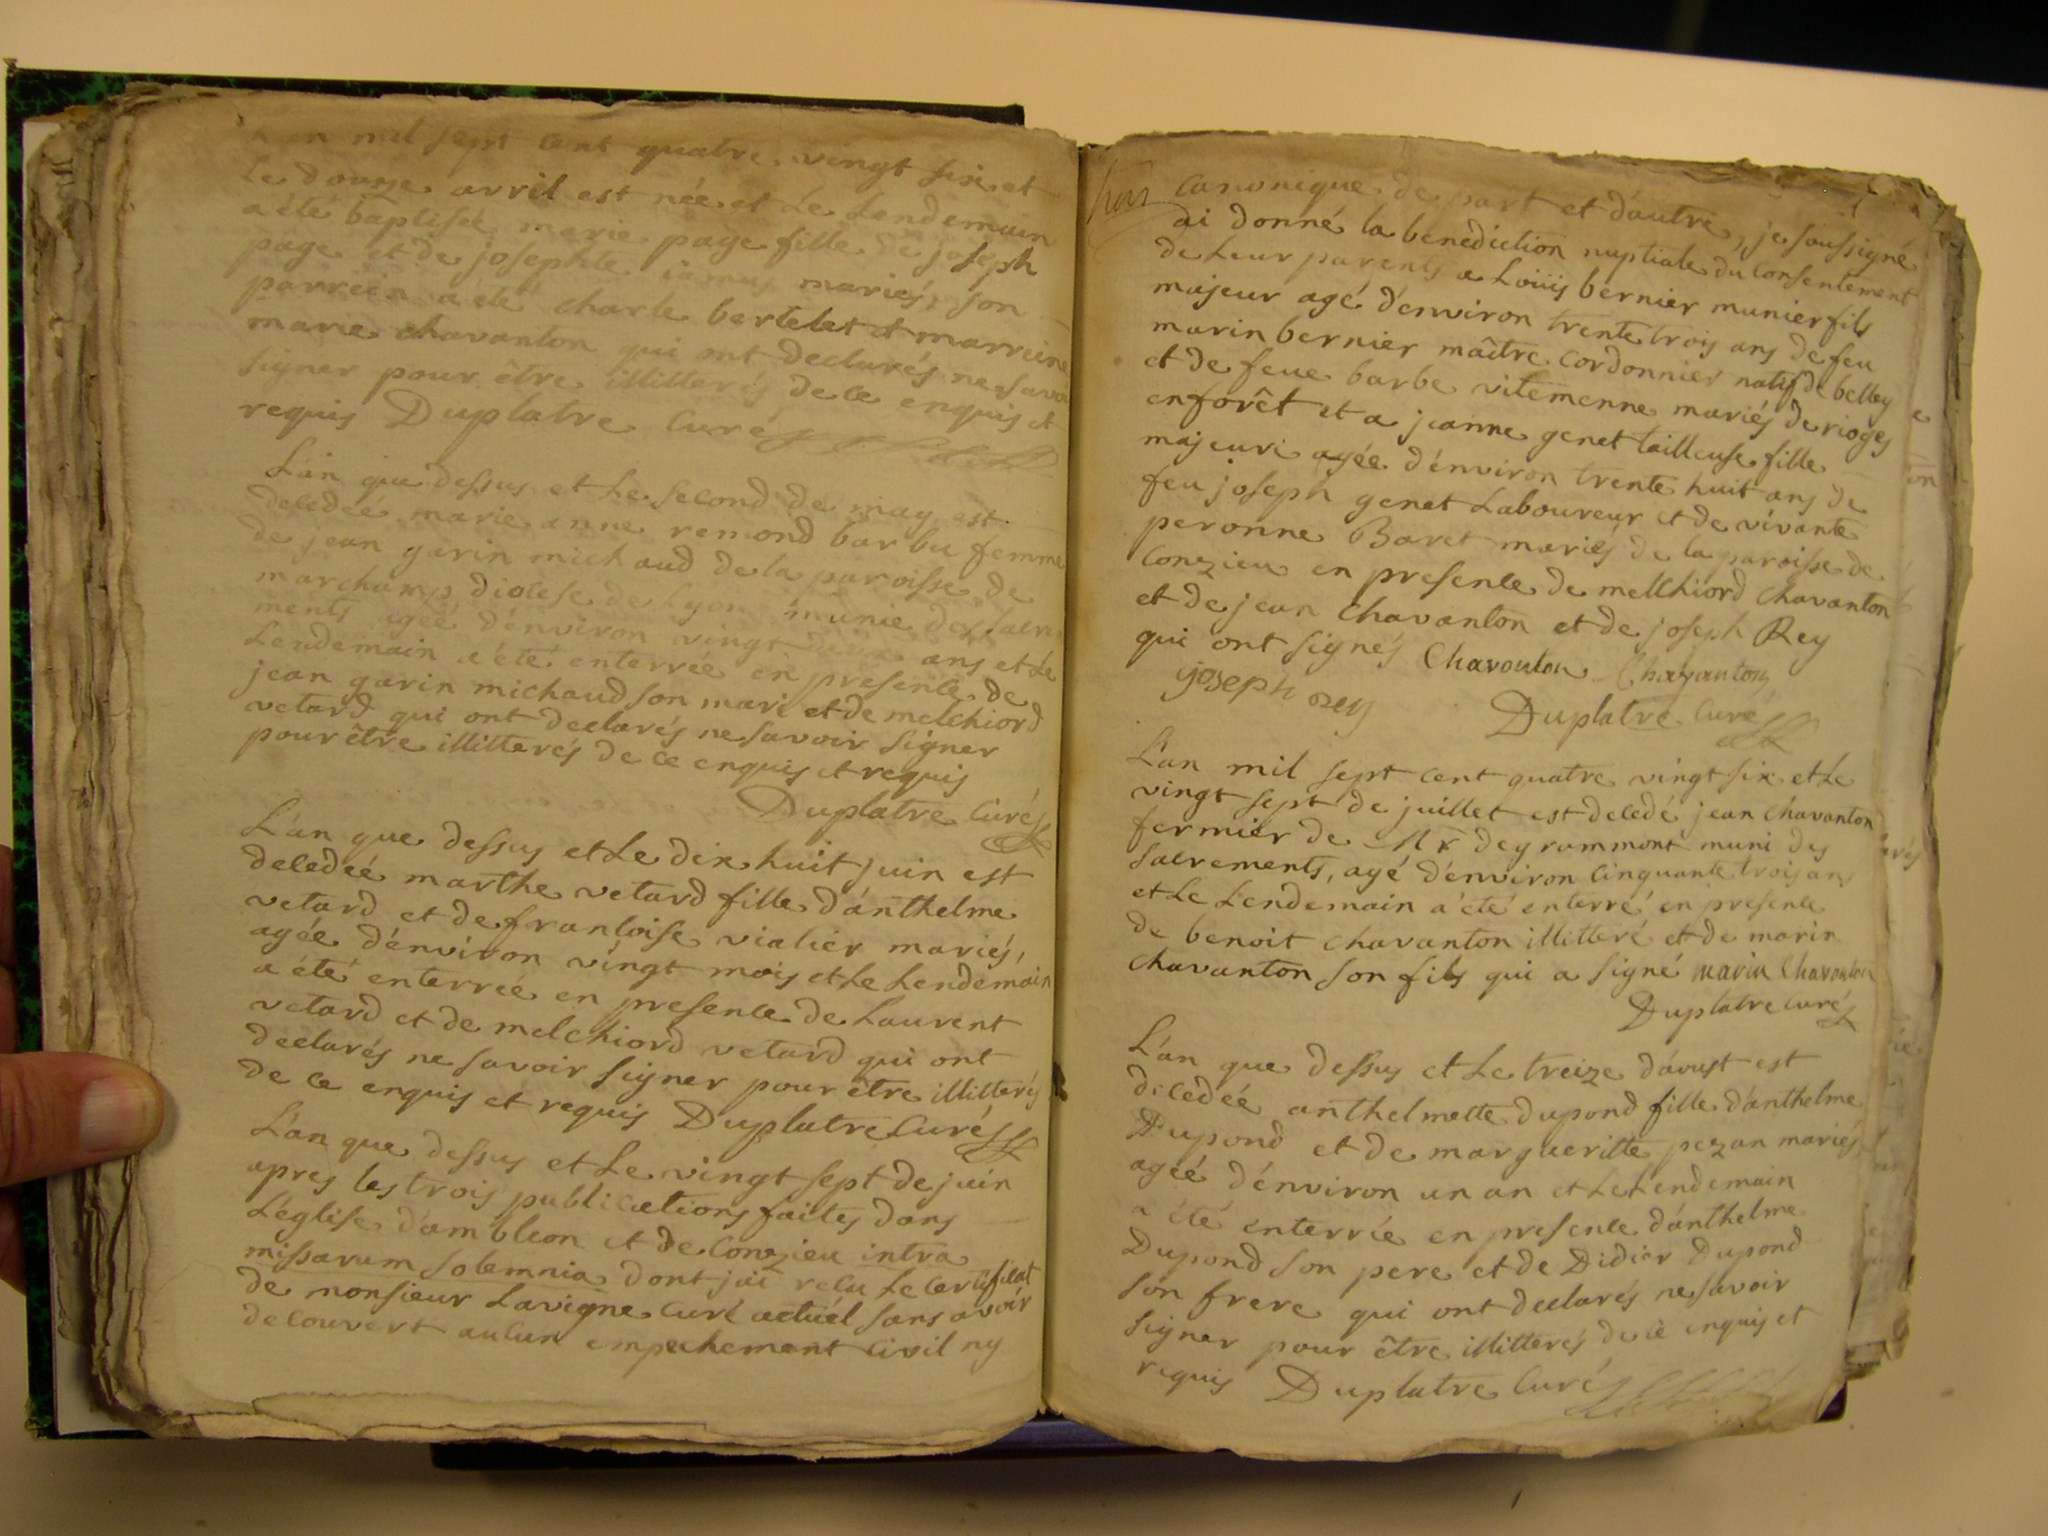 mil sept cent quatre vingt six et
le douze avril est née et le lendemain
a été baptisée marie page fille de joseph
page et de josephte mariés, son
parrein a été charle bertelet et marreine
marie chavanton qui ont declarés ne savoir
signer pour être illitterés de ce enquis et
requis Duplatre Curé
L'an que dessus et le second de may est
decedéé marie anne remond barbu femme
de jean garin michaud de la paroisse de
marchamp diocese de Lyon munie des sacre
ments agéé d'énviron vingt ans et le
Lendemain a été enterrée en presence de
jean garin michaud son mari et de melchiord
vetard qui ont declarés ne savoir signer
pour être illitterés de ce enquis et requis
Duplatre Curé
L'an que dessus et le dix huit juin est
decedéé marthe vetard fille d'ánthelme
vetard et de francoise vialier mariés,
agée d'énviron vingt mois et le Lendemain
a été enterréé en presence de Laurent
vetard et de melchiord vetard qui ont
declarés ne savoir signer pour être illitterés
de ce enquis et requis Duplatre Curé
L'an que dessus et le vingt sept de juin
apres les trois publications faites dans
L'eglise d'ambleon et de Conzieu intra
missarum solemnia dont j'ai recu le certificat
de monsieur Lavigne Curé actuél sans avoir
decouvert aucun empechement civil ny
canonique de part et d'autre, je soussigné
ai donné la benediction nuptiale du consentement
de Leur parents a Louis bernier munier fils
majeur agé d'énviron trente trois ans de feu
marin bernier maître cordonnier natif de belley
et de feue barbe vitemenne mariés de rioges
enforêt et a jeanne genet tailleuse fille
majeure agéé d'énviron trente huit ans de
feu joseph genet Laboureur et de vivante
peronne Baret mariés de la paroisse de
Conzieu en presence de melchiord Chavanton
et de jean Chavanton et de joseph Rey
qui ont signés Chavonton Chavanton
joseph rey
Duplatre Curé
L'an mil sept cent quatre vingt six et le
vingt sept de juillet est decedé jean chavanton
fermier de Mr degrammont muni des
sacrements, agé d'énviron cinquante trois ans
et le Lendemain a été enterré en presence
de benoit chavanton illitteré et de marin
chavanton son fils qui a signé marin Chavonton
Duplatre Curé
L'an que dessus et le treize d'áoust est
decedéé anthelmette dupond fille d'ánthelme
Dupond et de margueritte pezan mariés,
agéé d'énviron un an et le Lendemain
a été enterrée en presence d'ánthelme
Dupond son pere et de Didier Dupond
son frere qui ont declarés ne savoir
signer pour être illitterés de ce enquis et
requis Duplatre Curé